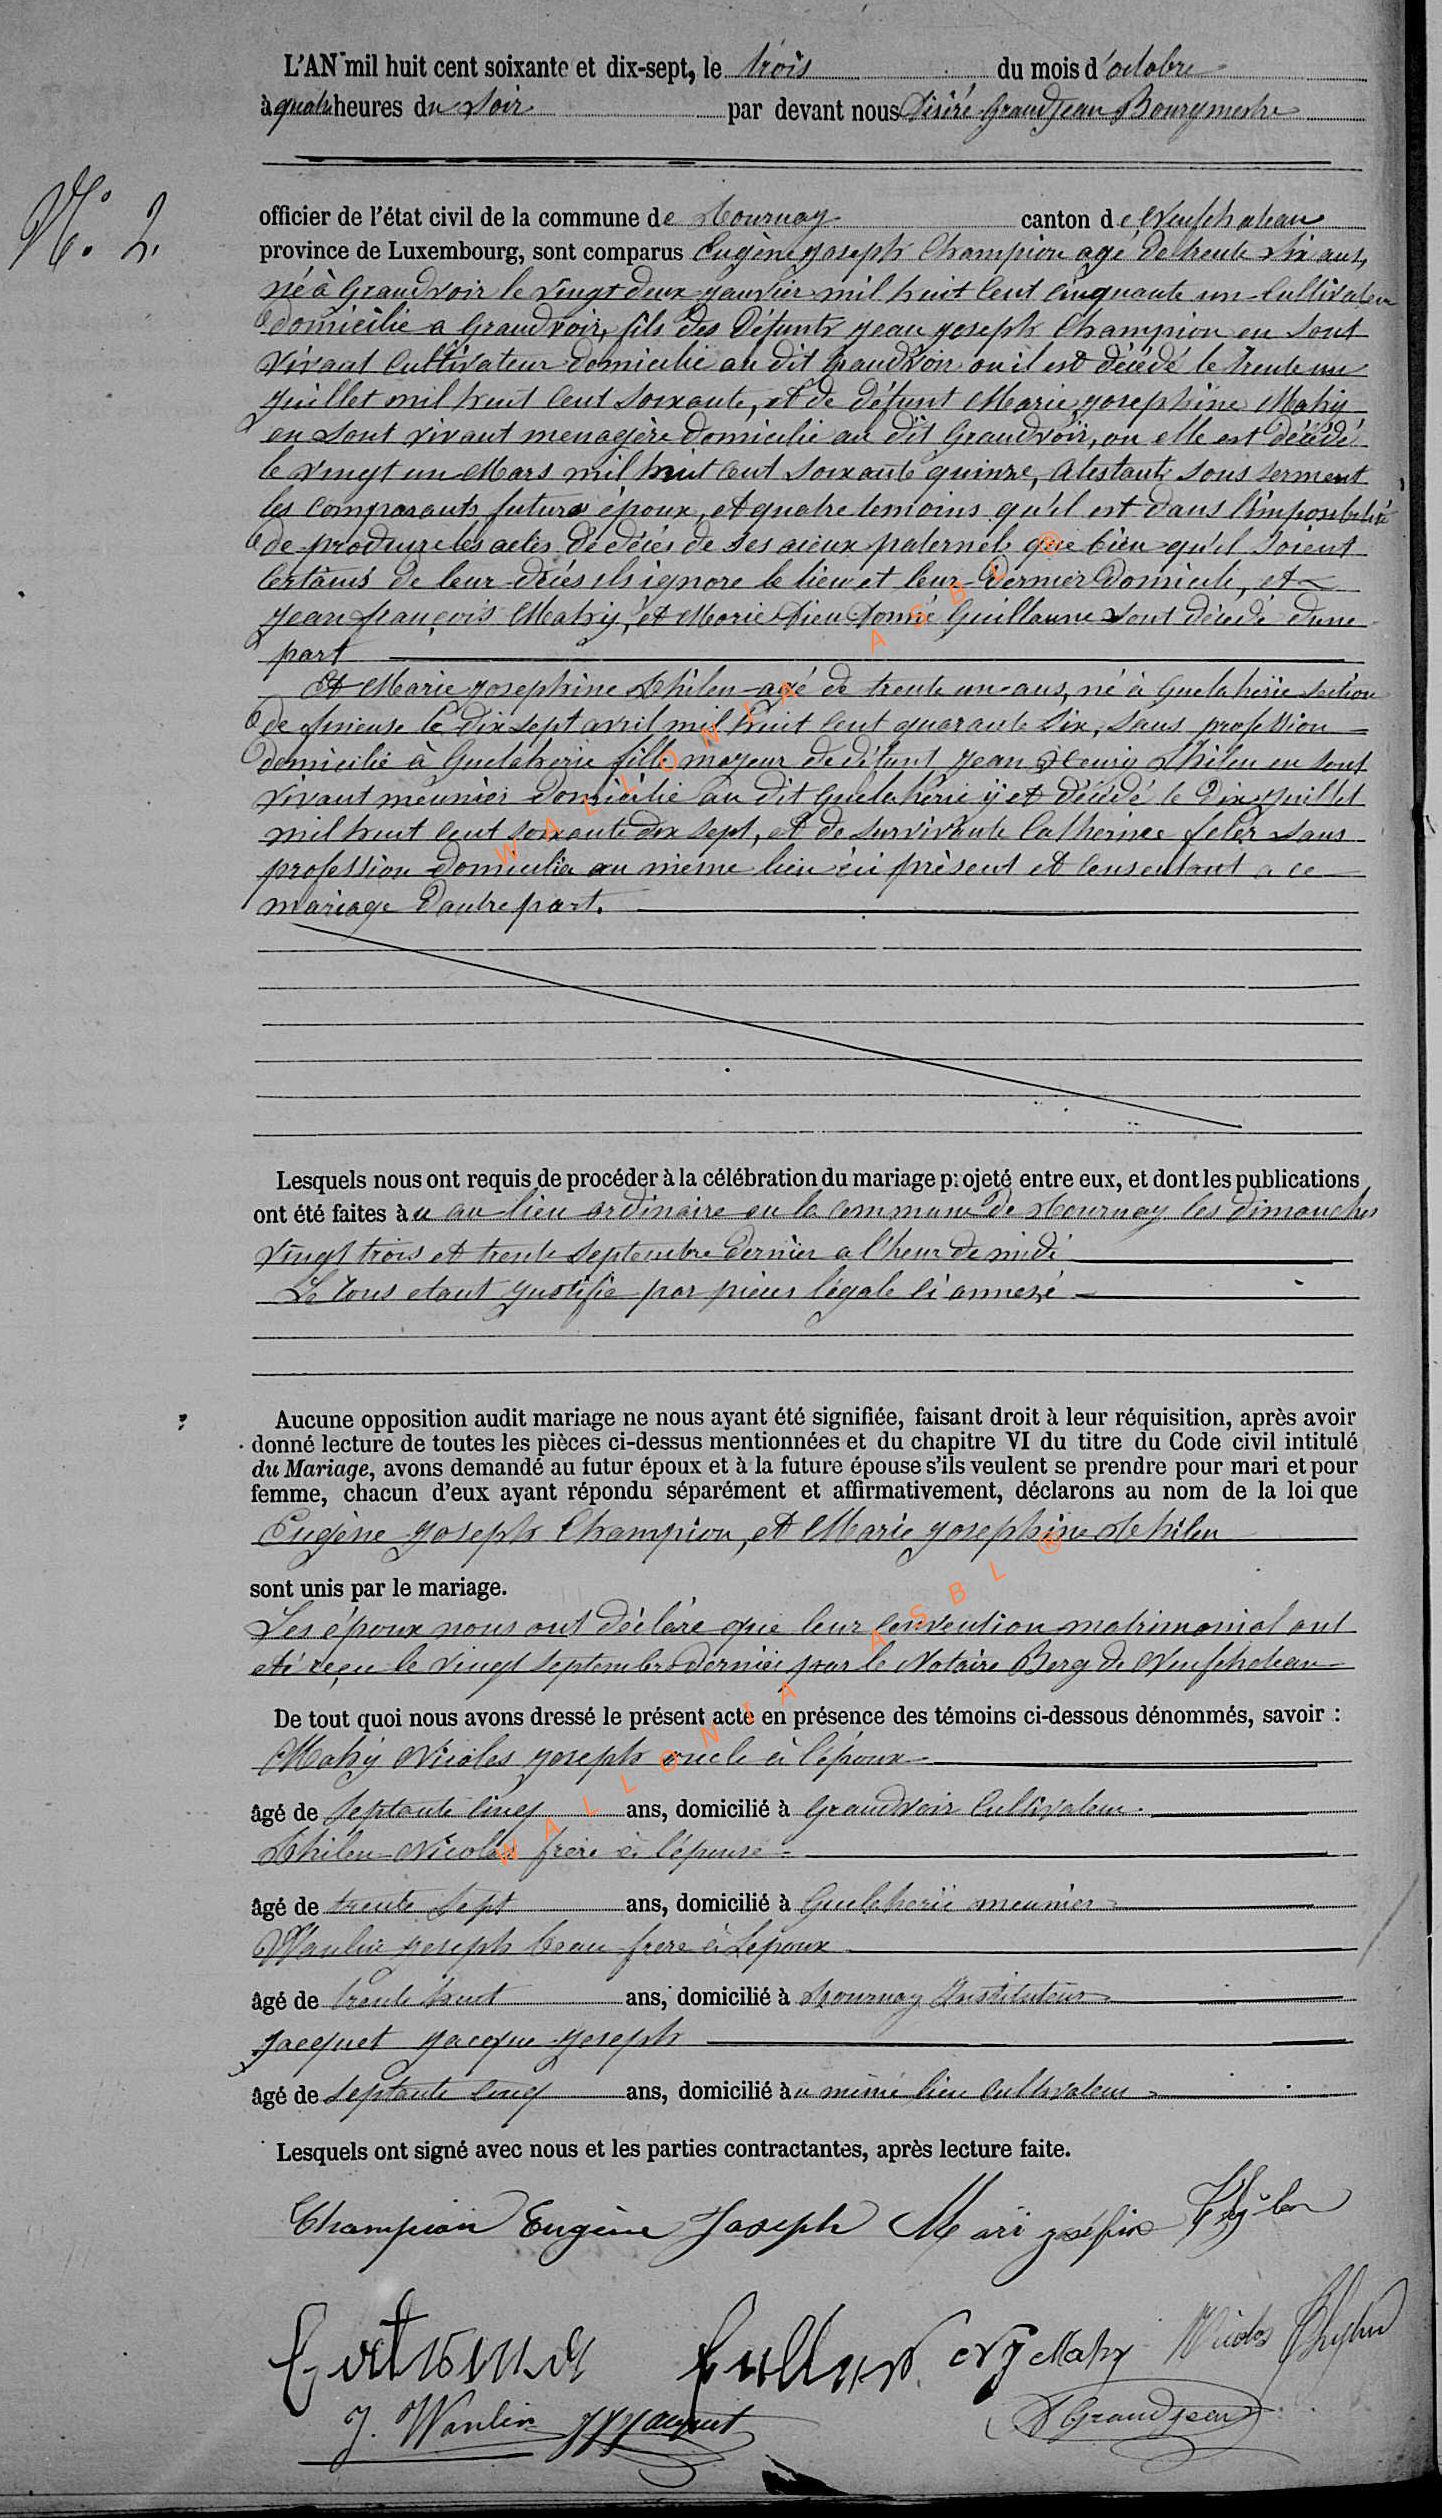 L'AN mil huit cent soixante et dix-sept, le trois du mois d'octobre
à quatre heures du soir par devant nous Désiré Grandjean Bourgmestre
N.° 2.
officier de l'état civil de la commune de Tournay canton de Neufchateau
province de Luxembourg, sont comparus Eugène Joseph Champion agé de trente six ans,
né à Grandvoir le vingt deux janvier mil huit cent cinquante un cultivateur
domicilié a Grandvoir, fils des défunts Jean Joseph Champion en sont
vivant cultivateur domicilié au dit Grandvoir ou il est décédé le trente un
juillet mil huit cent soixante, et de défunt Marie Josephine Mahy
en sont vivant menagère domicilié au dit Grandvoir, ou elle est décédé
le vingt un Mars mil huit cent soixante quinze, atestants sous serment
les comparants futurs époux, et quatre temoins qu'il est dans l'imposibilité
de produire les actes de décès de ses aieux paternels que bien qu'il soient
certains de leur décès ils ignore le lieu et leur dernier domicile, et
Jean françois Mahy, et Marie Dieudonné Guillaume sont décédé d'une
part
Et Marie Josephine Thilen agé de trente un ans, né à section
de le dix sept avril mil huit cent quarante six, sans profession
domicilié à fille mayeur de défunt Jean Henry Thilen en sont
vivant meunier domicilié au dit ÿ et décédé le dix juillet
mil huit cent soixante dix sept, et de survivante Catherine feler sans
profession domicilié au même lieu ici présent et consentant a ce
mariage d'autre part.
Lesquels nous ont requis de procéder à la célébration du mariage projeté entre eux, et dont les publications
ont été faites àu au lieu ordinaire en la commune de Tournay les dimanches
vingt trois et trente septembre dernier a l'heur de midi
Le tous etant justifié par pièces légale ci annexé
Aucune opposition audit mariage ne nous ayant été signifiée, faisant droit à leur réquisition, après avoir
donné lecture de toutes les pièces ci-dessus mentionnées et du chapitre VI du titre du Code civil intitulé
du Mariage, avons demandé au futur époux et à la future épouse s'ils veulent se prendre pour mari et pour
femme, chacun d'eux ayant répondu séparément et affirmativement, déclarons au nom de la loi que
Eugène Joseph Champion, et Marie Josephine Thilen
sont unis par le mariage.
Les époux nous ont déclare que leur convention matrimonial ont
été reçu le vingt septembre dernier par le Notaire Berg de Neufchateau
De tout quoi nous avons dressé le présent acte en présence des témoins ci-dessous dénommés, savoir :
Mahy Nicolas Joseph oncle à l'époux
âgé de septante cinq ans, domicilié à Grandvoir Cultivateur
Thilen Nicolas frère à l'épouse
âgé de trente sept ans, domicilié à meunier
Wanlin Joseph beau frere à L'epoux
âgé de trente huit ans, domicilié à Tournay Instituteur
Jacquet Jacque Joseph
âgé de septante cinq ans, domicilié àu même lieu cultivateur
Lesquels ont signé avec nous et les parties contractantes, après lecture faite.
Champion Eugène Joseph Mari joséfine Thylen
Mahy Nicolas Thylen
J. Wanlin JJ Jacquet D Grandjean
WALLONIA ASBL ®
WALLONIA ASBL ®